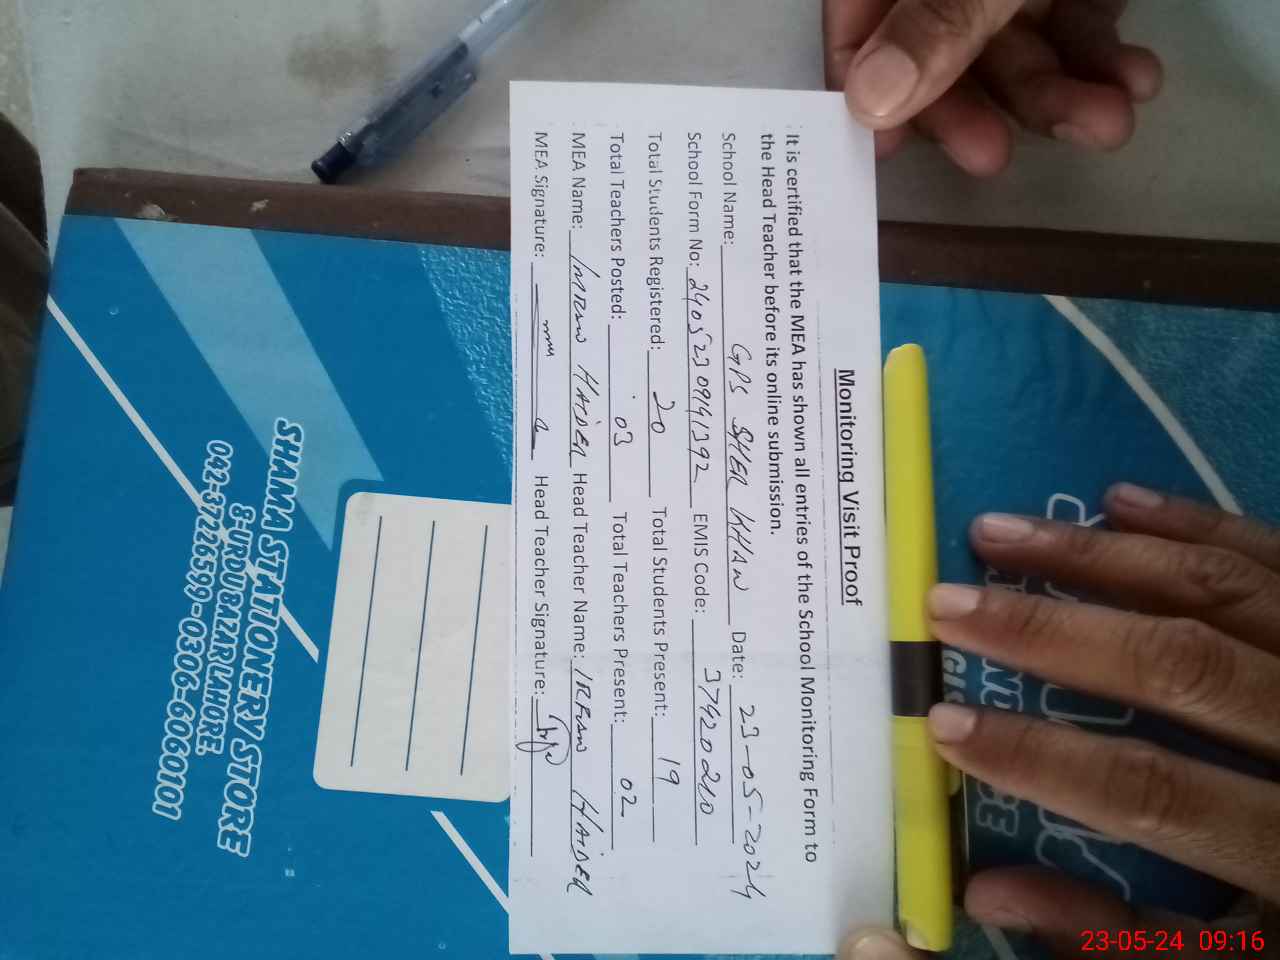 Monitoring Visit Proof
It is certified that the MEA has shown all entries of the School Monitoring Form to
the Head Teacher before its online submission.
School Name: GPS SHER KHAN Date: 23-05-2024
School Form No: 24052309141392 EMIS Code: 37420210
Total Students Registered: 20 Total Students Present: 19
Total Teachers Posted: 03 Total Teachers Present: 02
MEA Name: IMRAN HAIDER Head Teacher Name: IRFAN HAIDER
MEA Signature: Head Teacher Signature:
SHAMA STATIONERY STORE
8-URDU BAZAR LAHORE.
042-37226599-0306-6060101
23-05-24 09:16